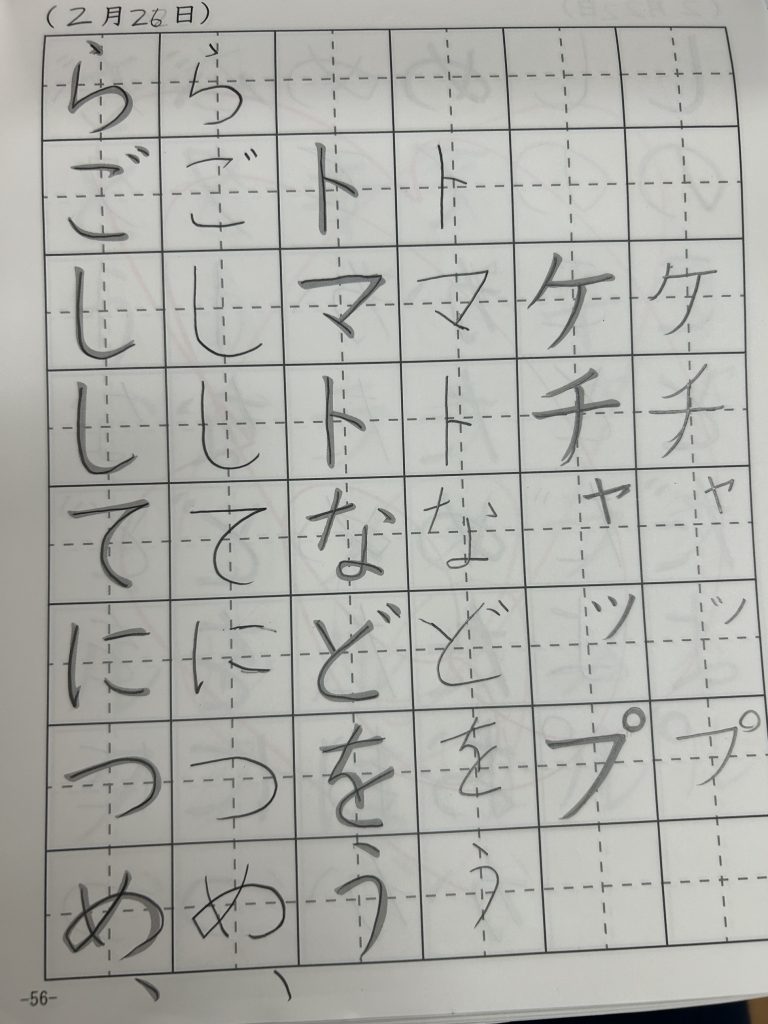 （2月26日）
ケチャップ
ケチャップ
トマトなどをう
トマトなどをう
らごししてにつめ、
らごししてにつめ、
-56-